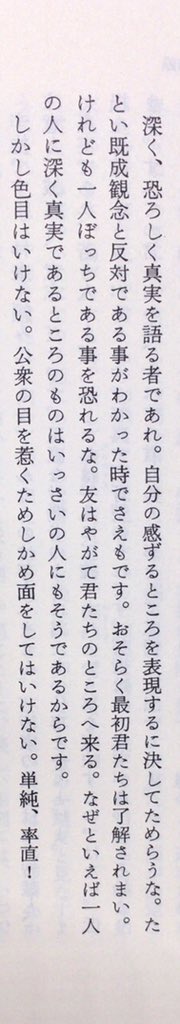 深く、恐ろしく真実を語る者であれ。自分の感ずるところを表現するに決してためらうな。た
とい既成観念と反対である事がわかった時でさえもです。おそらく最初君たちは了解されまい。
けれども一人ぼっちである事を恐れるな。友はやがて君たちのところへ来る。なぜといえば一人
の人に深く真実であるところのものはいっさいの人にもそうであるからです。
しかし色目はいけない。公衆の目を惹くためしかめ面をしてはいけない。単純、率直！